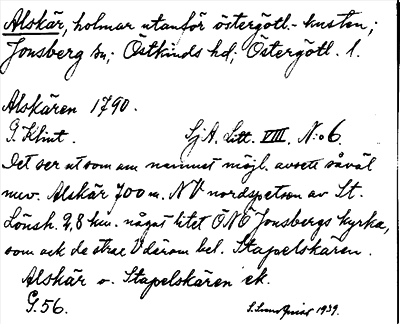 Alskär, holmar utanför östergötl.-kusten;
Jonsberg sn; Östkinds hd; Östergötl. l.
Alskären 1790.
G. Klint. Sj A. Litt. VIII. N:o 6.
Det ser ut som om namnet möjl. avsett såväl
nuv. Alskär 700 m. NV nordspetsen av St.
Lönsh. 2,8 km. något litet ONO Jonsbergs kyrka,
som ock de strax V därom bel. Stapelskären.
Alskär o. Stapelskären ek.
G. 56. 1939.